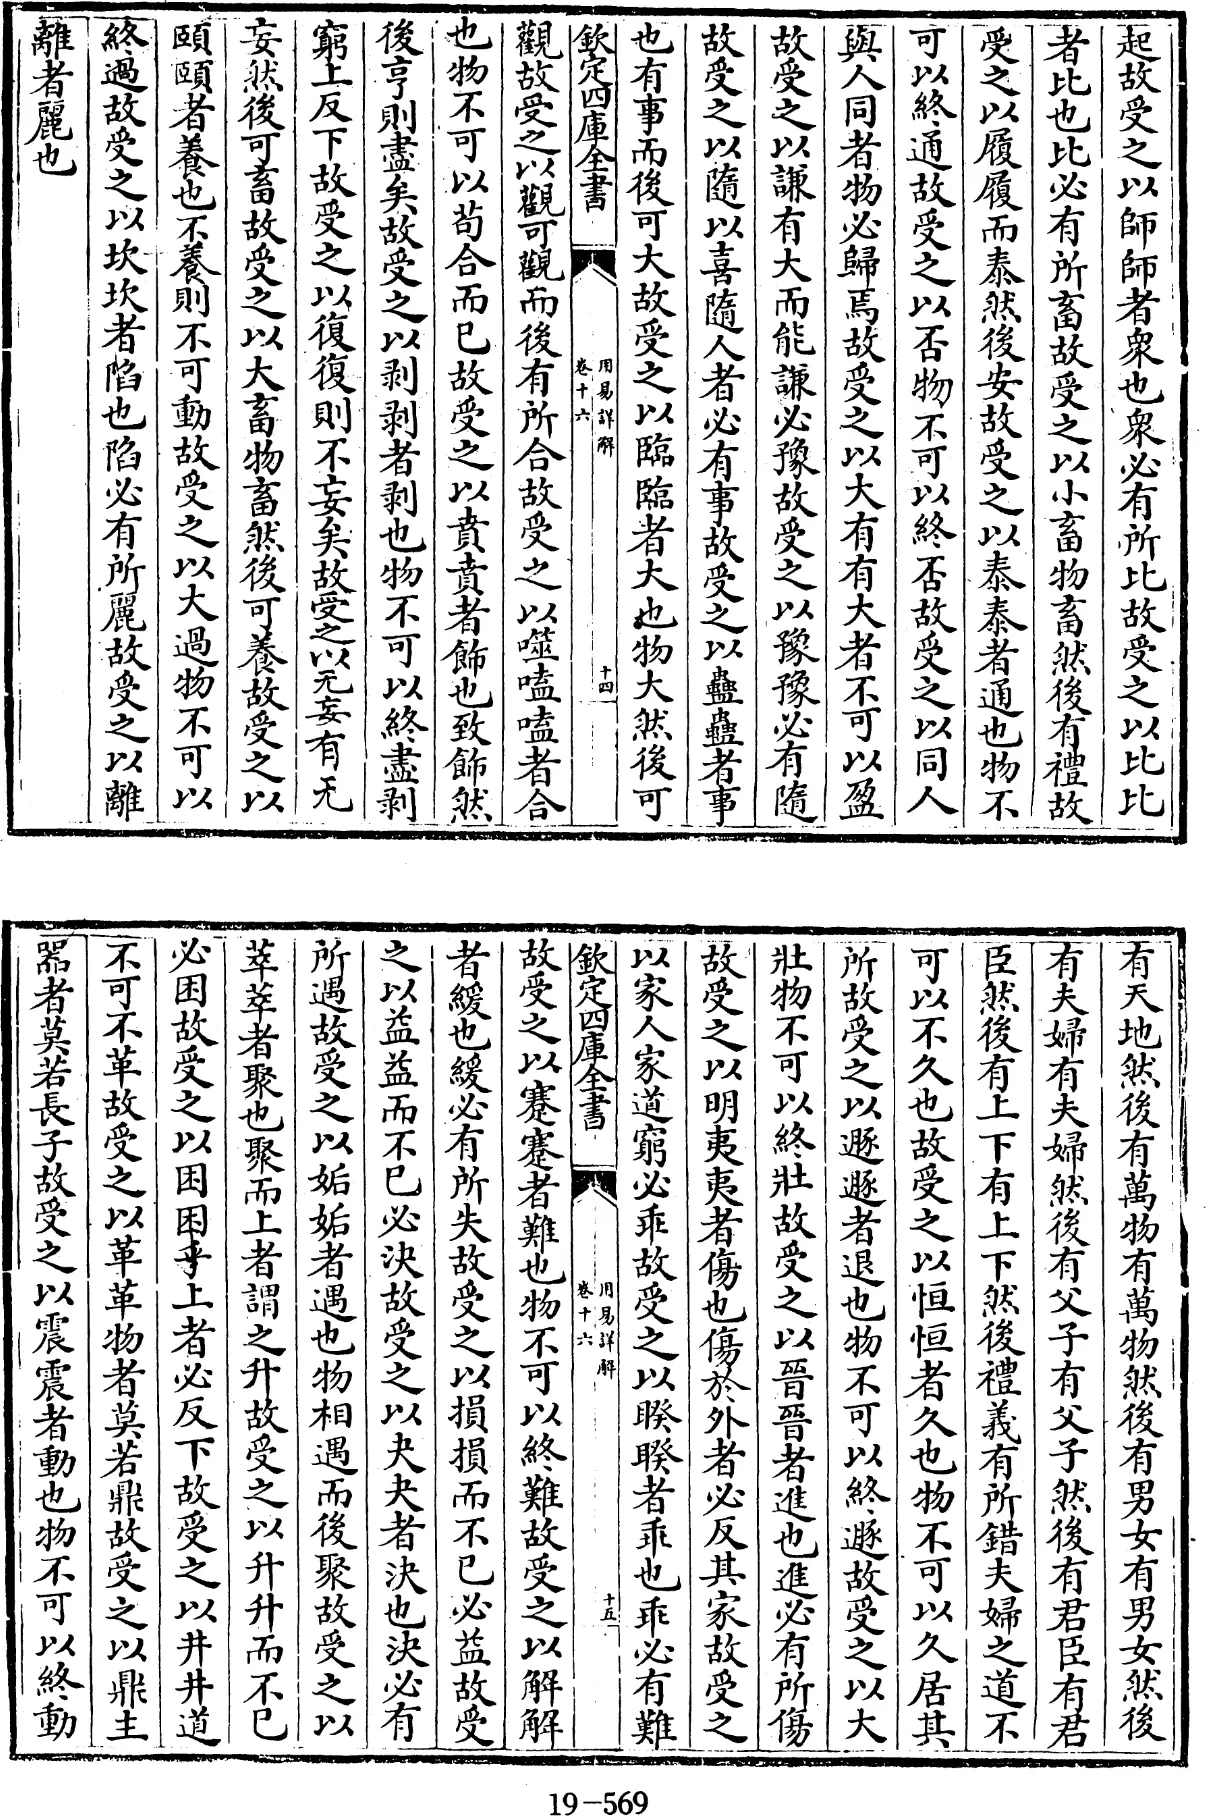 起故受之以師師者衆也衆必有所比故受之以比比
者比也比必有所畜故受之以小畜物畜然後有禮故
受之以履履而泰然後安故受之以泰泰者通也物不
可以終通故受之以否物不可以終否故受之以同人
與人同者物必歸焉故受之以大有有大者不可以盈
故受之以謙有大而能謙必豫故受之以豫豫必有隨
故受之以隨以喜隨人者必有事故受之以蠱蠱者事
也有事而後可大故受之以臨臨者大也物大然後可
欽定四庫全書
用易詳解
卷十六
十四
觀故受之以觀可觀而後有所合故受之以噬嗑嗑者合
也物不可以苟合而已故受之以賁賁者飾也致飾然
後亨則盡矣故受之以剥剥者剥也物不可以終盡剥
窮上反下故受之以復復則不妄矣故受之以无妄有无
妄然後可畜故受之以大畜物畜然後可養故受之以
頤頤者養也不養則不可動故受之以大過物不可以
終過故受之以坎坎者陷也陷必有所麗故受之以離
離者麗也
有天地然後有萬物有萬物然後有男女有男女然後
有夫婦有夫婦然後有父子有父子然後有君臣有君
臣然後有上下有上下然後禮義有所錯夫婦之道不
可以不久也故受之以恒恒者久也物不可以久居其
所故受之以遯遯者退也物不可以終遯故受之以大
壯物不可以終壯故受之以晉晉者進也進必有所傷
故受之以明夷夷者傷也傷於外者必反其家故受之
以家人家道窮必乖故受之以睽睽者乖也乖必有難
欽定四庫全書
用易詳解
卷十六
十五
故受之以蹇蹇者難也物不可以終難故受之以解解
者緩也緩必有所失故受之以損損而不已必益故受
之以益益而不已必決故受之以夬夬者決也決必有
所遇故受之以姤姤者遇也物相遇而後聚故受之以
萃萃者聚也聚而上者謂之升故受之以升升而不已
必困故受之以困困乎上者必反下故受之以井井道
不可不革故受之以革革物者莫若鼎故受之以鼎主
器者莫若長子故受之以震震者動也物不可以終動
19-569